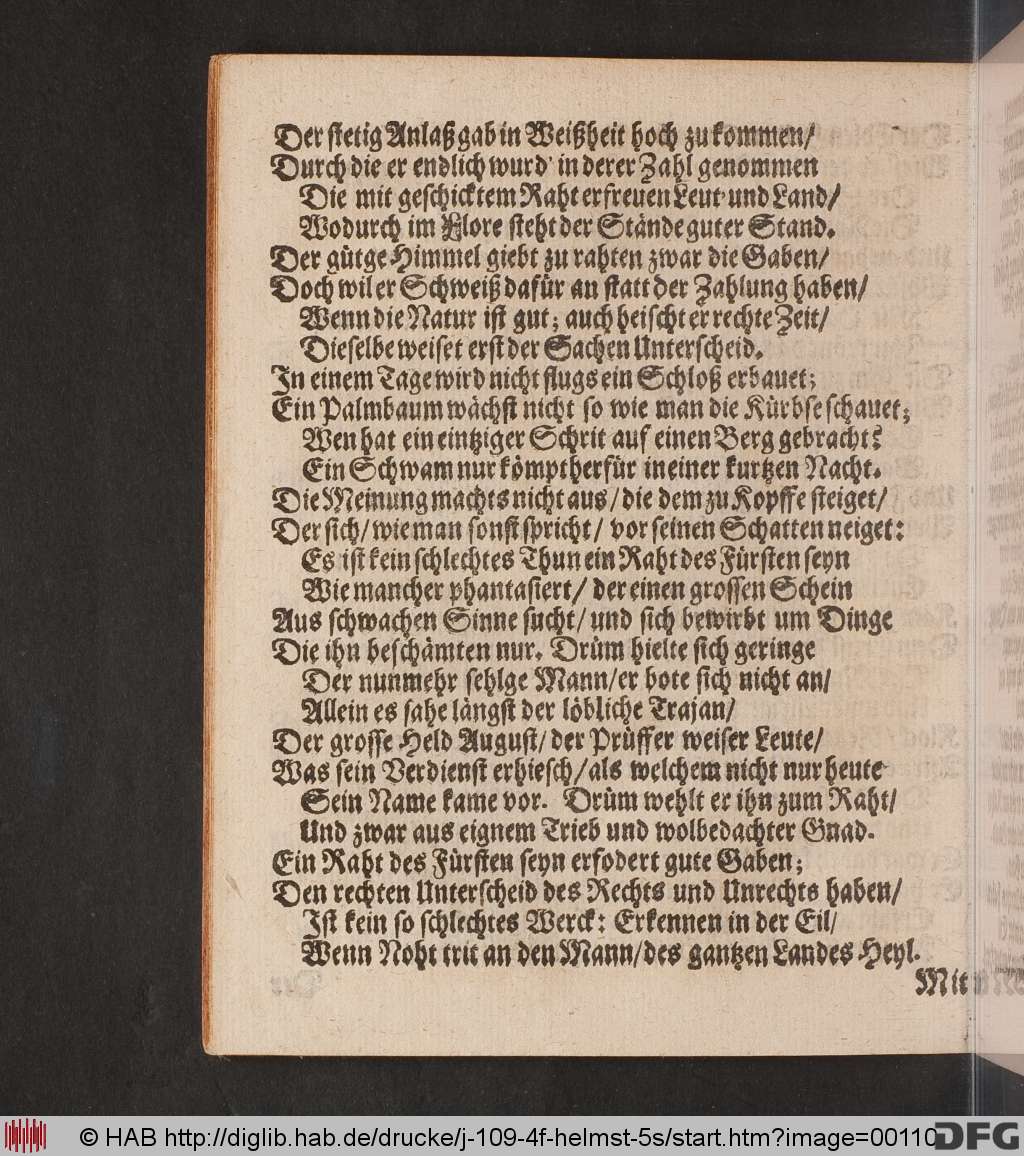 Der stetig Anlaß gab in Weißheit hoch zu kommen/
Durch die er endlich wurd' in derer Zahl genommen
Die mit geschicktem Raht erfreuen Leut' und Land/
Wodurch im Flore steht der Stände guter Stand.
Der gütge Himmel giebt zu rahten zwar die Gaben/
Doch wil er Schweiß dafür an statt der Zahlung haben/
Wenn die Natur ist gut; auch heischt er rechte Zeit/
Dieselbe weiset erst der Sachen Unterscheid.
In einem Tage wird nicht flugs ein Schloß erbauet;
Ein Palmbaum wächst nicht so wie man die Kürbse schauet;
Wen hat ein eintziger Schrit auf einen Berg gebracht?
Ein Schwam nur kömpt herfür in einer kurtzen Nacht.
Die Meinung machts nicht aus/ die dem zu Kopffe steiget/
Der sich/ wie man sonst spricht/ vor seinen Schatten neiget:
Es ist kein schlechtes Thun ein Raht des Fürsten seyn
Wie mancher phantasiert/ der einen grossen Schein
Aus schwachen Sinne sucht/ und sich bewirbt um Dinge
Die ihn beschämten nur. Drüm hielte sich geringe
Der nunmehr sehlge Mann/ er bote sich nicht an/
Allein es sahe längst der löbliche Trajan/
Der grosse Held August/ der Prüffer weiser Leute/
Was sein Verdienst erhiesch/ als welchem nicht nur heute
Sein Name kame vor. Drüm wehlt er ihn zum Raht/
Und zwar aus eignem Trieb und wolbedachter Gnad.
Ein Raht des Fürsten seyn erfodert gute Gaben;
Den rechten Unterscheid des Rechts und Unrechts haben/
Ist kein so schlechtes Werck: Erkennen in der Eil/
Wenn Noht trit an den Mann/ des gantzen Landes Heyl.
Mit
© HAB http://diglib.hab.de/drucke/j-109-4f-helmst-5s/start.htm?image=00110
DFG